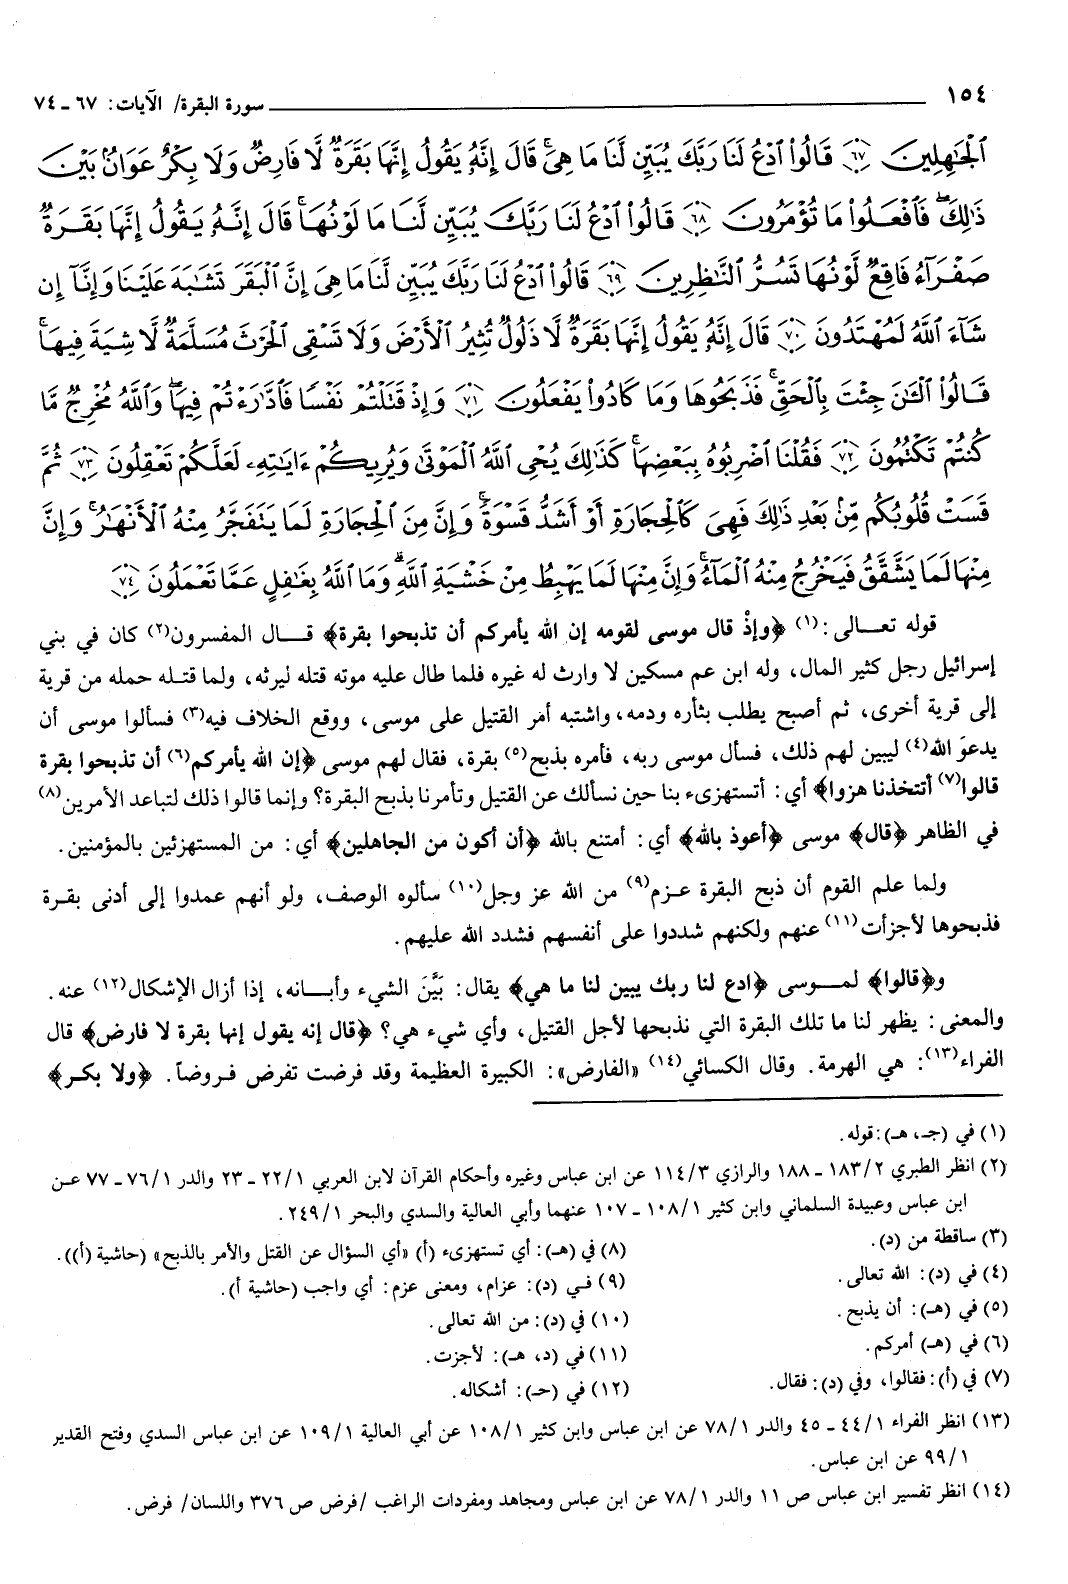 ١٥٤ سورة البقرة/ الآيات: ٦٧ ـ ٧٤
ٱلْجَٰهِلِينَ ٦٧ قَالُوا۟ ٱدْعُ لَنَا رَبَّكَ يُبَيِّن لَّنَا مَا هِىَ ۚ قَالَ إِنَّهُۥ يَقُولُ إِنَّهَا بَقَرَةٌ لَّا فَارِضٌ وَلَا بِكْرٌ عَوَانٌۢ بَيْنَ
ذَٰلِكَ ۖ فَٱفْعَلُوا۟ مَا تُؤْمَرُونَ ٦٨ قَالُوا۟ ٱدْعُ لَنَا رَبَّكَ يُبَيِّن لَّنَا مَا لَوْنُهَا ۚ قَالَ إِنَّهُۥ يَقُولُ إِنَّهَا بَقَرَةٌ
صَفْرَآءُ فَاقِعٌ لَّوْنُهَا تَسُرُّ ٱلنَّٰظِرِينَ ٦٩ قَالُوا۟ ٱدْعُ لَنَا رَبَّكَ يُبَيِّن لَّنَا مَا هِىَ إِنَّ ٱلْبَقَرَ تَشَٰبَهَ عَلَيْنَا وَإِنَّآ إِن
شَآءَ ٱللَّهُ لَمُهْتَدُونَ ٧٠ قَالَ إِنَّهُۥ يَقُولُ إِنَّهَا بَقَرَةٌ لَّا ذَلُولٌ تُثِيرُ ٱلْأَرْضَ وَلَا تَسْقِى ٱلْحَرْثَ مُسَلَّمَةٌ لَّا شِيَةَ فِيهَا ۚ
قَالُوا۟ ٱلْـَٰٔنَ جِئْتَ بِٱلْحَقِّ ۚ فَذَبَحُوهَا وَمَا كَادُوا۟ يَفْعَلُونَ ٧١ وَإِذْ قَتَلْتُمْ نَفْسًا فَٱدَّٰرَْٰٔتُمْ فِيهَا ۖ وَٱللَّهُ مُخْرِجٌ مَّا
كُنتُمْ تَكْتُمُونَ ٧٢ فَقُلْنَا ٱضْرِبُوهُ بِبَعْضِهَا ۚ كَذَٰلِكَ يُحْىِ ٱللَّهُ ٱلْمَوْتَىٰ وَيُرِيكُمْ ءَايَٰتِهِۦ لَعَلَّكُمْ تَعْقِلُونَ ٧٣ ثُمَّ
قَسَتْ قُلُوبُكُم مِّنۢ بَعْدِ ذَٰلِكَ فَهِىَ كَٱلْحِجَارَةِ أَوْ أَشَدُّ قَسْوَةً ۚ وَإِنَّ مِنَ ٱلْحِجَارَةِ لَمَا يَتَفَجَّرُ مِنْهُ ٱلْأَنْهَٰرُ ۚ وَإِنَّ
مِنْهَا لَمَا يَشَّقَّقُ فَيَخْرُجُ مِنْهُ ٱلْمَآءُ ۚ وَإِنَّ مِنْهَا لَمَا يَهْبِطُ مِنْ خَشْيَةِ ٱللَّهِ ۗ وَمَا ٱللَّهُ بِغَٰفِلٍ عَمَّا تَعْمَلُونَ ٧٤
قوله تعـالى:(١) ﴿وإذْ قال موسى لقومه إن الله يأمركم أن تذبحوا بقرة﴾ قـال المفسرون(٢) كان في بني
إسرائيل رجل كثير المال، وله ابن عم مسكين لا وارث له غيره فلما طال عليه موته قتله ليرثه، ولما قتـله حمله من قرية
إلى قرية أخرى، ثم أصبح يطلب بثأره ودمه، واشتبه أمر القتيل على موسى، ووقع الخلاف فيه(٣) فسألوا موسى أن
يدعوَ الله(٤) ليبين لهم ذلك، فسأل موسى ربه، فأمره بذبح(٥) بقرة، فقال لهم موسى ﴿إن الله يأمركم(٦) أن تذبحوا بقرة
قالوا(٧) أتتخذنا هزوا﴾ أي: أتستهزىء بنا حين نسألك عن القتيل وتأمرنا بذبح البقرة؟ وإنما قالوا ذلك لتباعد الأمرين(٨)
في الظاهر ﴿قال﴾ موسى ﴿أعوذ بالله﴾ أي: أمتنع بالله ﴿أن أكون من الجاهلين﴾ أي: من المستهزئين بالمؤمنين.
ولما علم القوم أن ذبح البقرة عـزم(٩) من الله عز وجل(١٠) سألوه الوصف، ولو أنهم عمدوا إلى أدنى بقـرة
فذبحوها لأجزأت(١١) عنهم ولكنهم شددوا على أنفسهم فشدد الله عليهم.
و﴿قالوا﴾ لمـوسى ﴿ادع لنا ربك يبين لنا ما هي﴾ يقال: بَيَّنَ الشيء وأبـانه، إذا أزال الإشكال(١٢) عنه.
والمعنى: يظهر لنا ما تلك البقرة التي نذبحها لأجل القتيل، وأي شيء هي؟ ﴿قال إنه يقول إنها بقرة لا فارض﴾ قال
الفراء(١٣): هي الهرمة. وقال الكسائي(١٤) «الفارض»: الكبيرة العظيمة وقد فرضت تفرض فـروضاً. ﴿ولا بكـر﴾
(١) في (جـ، هـ): قوله.
(٢) انظر الطبري ٢/١٨٣ ـ ١٨٨ والرازي ٣/١١٤ عن ابن عباس وغيره وأحكام القرآن لابن العربي ١/٢٢ ـ ٢٣ والدر ١/٧٦ ـ ٧٧ عـن
ابن عباس وعبيدة السلماني وابن كثير ١/١٠٨ ـ ١٠٧ عنهما وأبي العالية والسدي والبحر ١/٢٤٩.
(٣) ساقطة من (د).
(٤) في (د): الله تعالى.
(٥) في (هـ): أن يذبح.
(٦) في (هـ) أمركم.
(٧) في (أ): فقالوا، وفي (د): فقال.
(٨) في (هـ): أي تستهزىء (أ) «أي السؤال عن القتل والأمر بالذبح» (حاشية (أ)).
(٩) فـي (د): عزام، ومعنى عزم: أي واجب (حاشية أ).
(١٠) في (د): من الله تعالى.
(١١) في (د، هـ): لأجزت.
(١٢) في (حـ): أشكاله.
(١٣) انظر الفراء ١/٤٤ ـ ٤٥ والدر ١/٧٨ عن ابن عباس وابن كثير ١/١٠٨ عن أبي العالية ١/١٠٩ عن ابن عباس السدي وفتح القدير
١/٩٩ عن ابن عباس.
(١٤) انظر تفسير ابن عباس ص ١١ والدر ١/٧٨ عن ابن عباس ومجاهد ومفردات الراغب /فرض ص ٣٧٦ واللسان/ فرض.